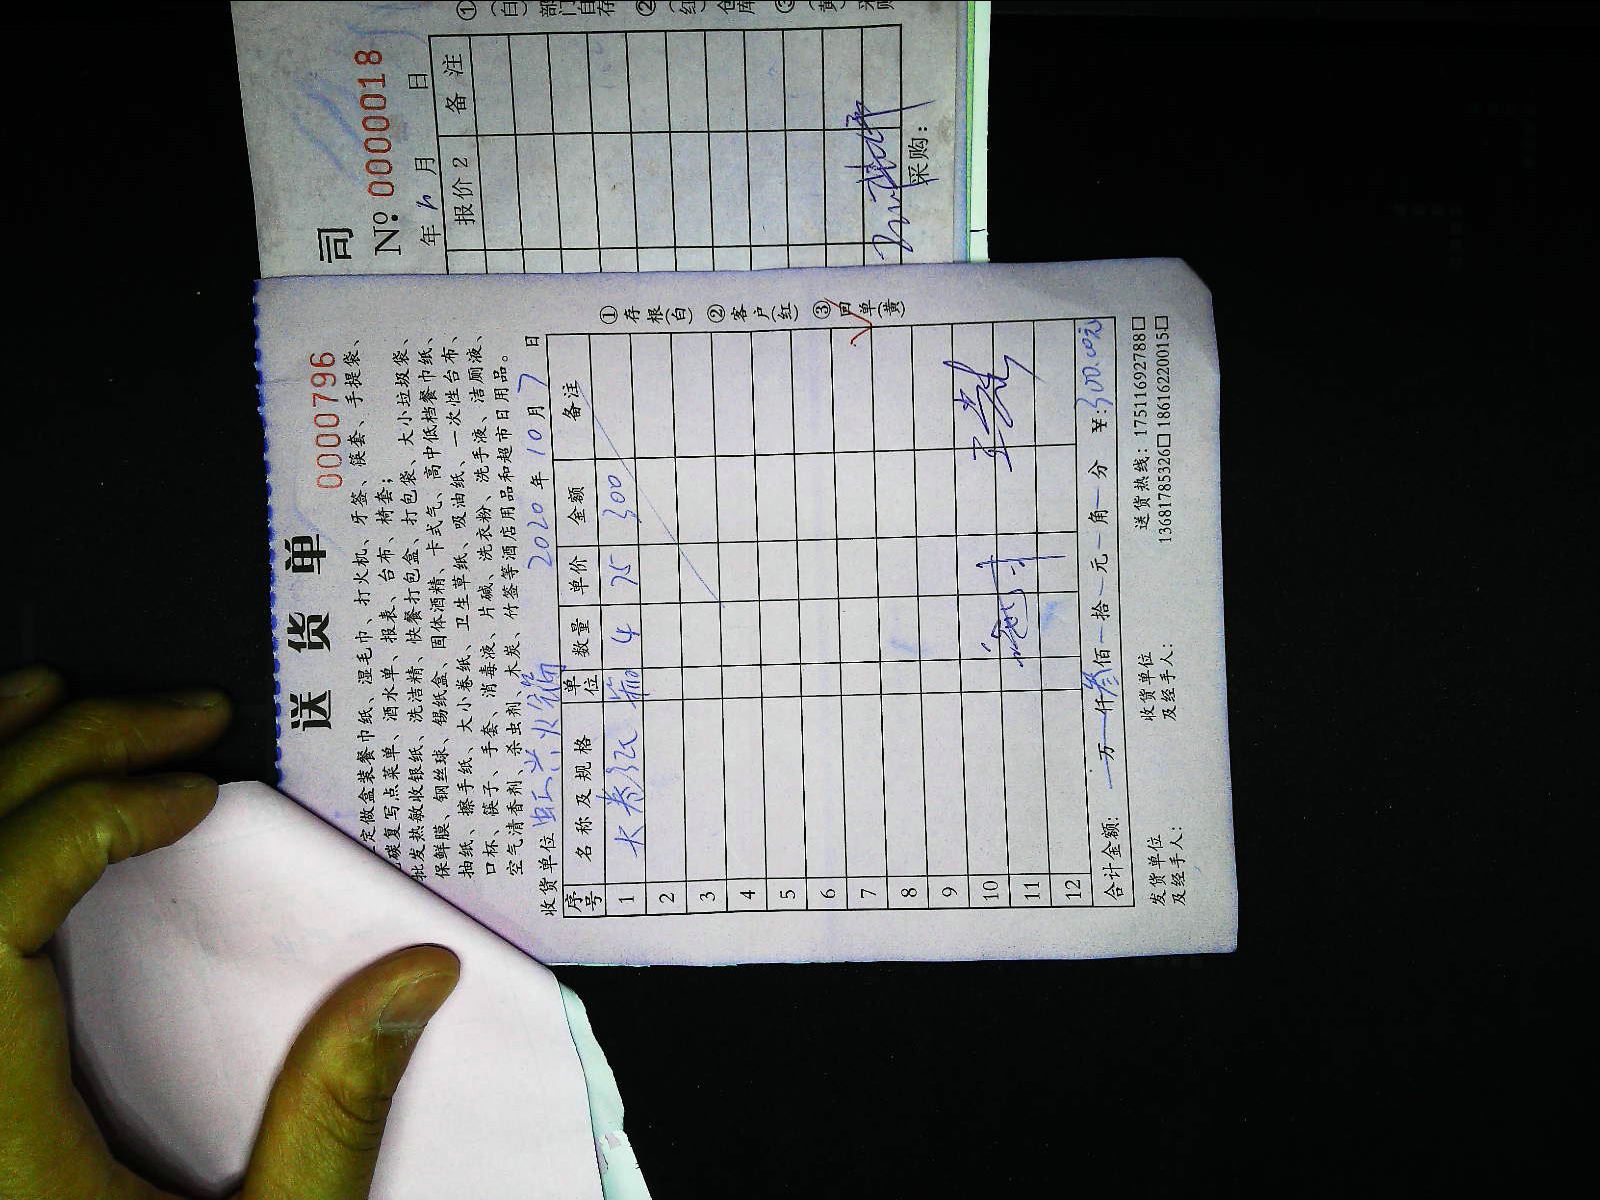 送货单
0000796
定做盒装餐巾纸、湿毛巾、打火机、牙签、筷套、手提袋、
碳复写点菜单、酒水单、报表、台布、椅套；
批发热敏收银纸、洗洁精、快餐打包盒、打包袋、大小垃圾袋、
保鲜膜、钢丝球、锡纸盒、固体酒精、卡式气、高中低档餐巾纸、
抽纸、擦手纸、大小卷纸、卫生草纸、吸油纸、一次性台布、
口杯、筷子、手套、消毒液、片碱、洗衣粉、洗手液、洁厕液、
空气清香剂、杀虫剂、木炭、竹签等酒店用品和超市日用品。
收货单位 2020年10月7日
序号 名称及规格 单位 数量 单价 金额 备注
1 大卷纸 箱 4 75 300
2
3
4
5
6
7
8
9
10
11
12
合计金额： 万 仟叁佰 拾 元 角 分 ￥：300.00元
发货单位及经手人： 收货单位及经手人： 送货热线：17511692788 13681785326 18616220015
①存根（白） ②客户（红） ③回单（黄）
司
№:0000018
年 月 日
报价2 备注
采购：
①（白）部门自存 ②（红）仓库 ③（黄）采购